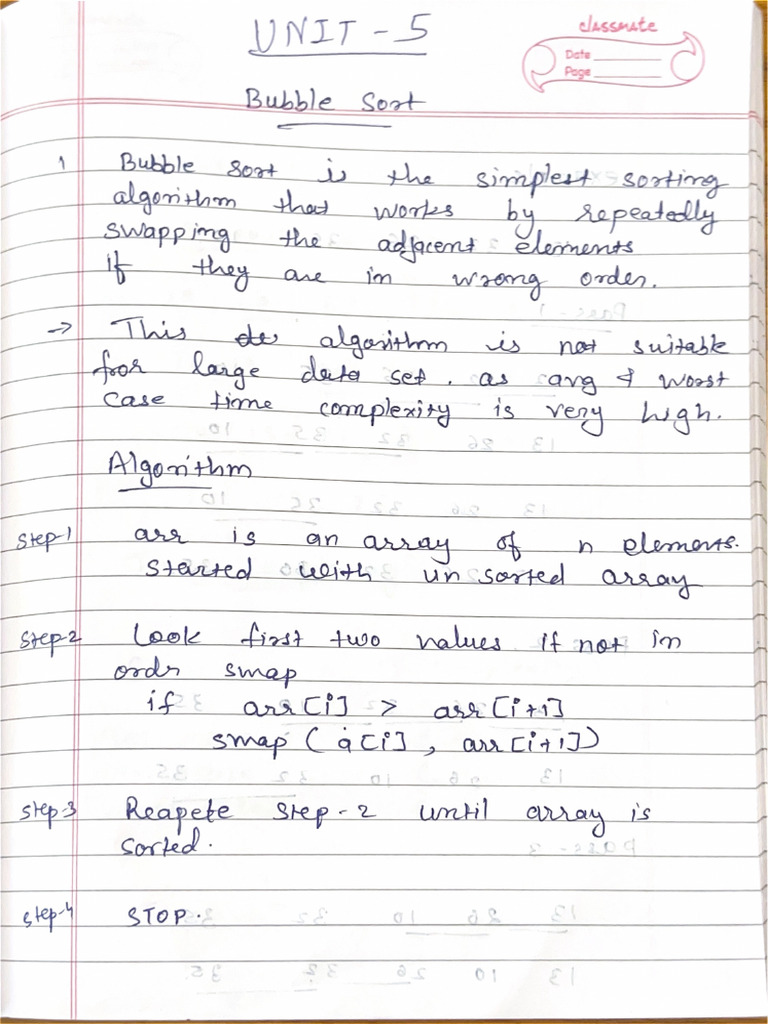 UNIT - 5
classmate
Date
Page
Bubble Sort
1 Bubble sort is the simplest sorting
algorithm that works by repeatedly
swapping the adjacent elements
if they are in wrong order.
→ This algorithm is not suitable
for large data set. as avg & worst
case time complexity is very high.
Algorithm
Step-1 arr is an array of n elements.
started with unsorted array
Step-2 Look first two values if not in
ordr swap
if arr[i] > arr[i+1]
swap (a[i], arr[i+1])
Step-3 Reapete Step-2 until array is
sorted.
Step-4 STOP.